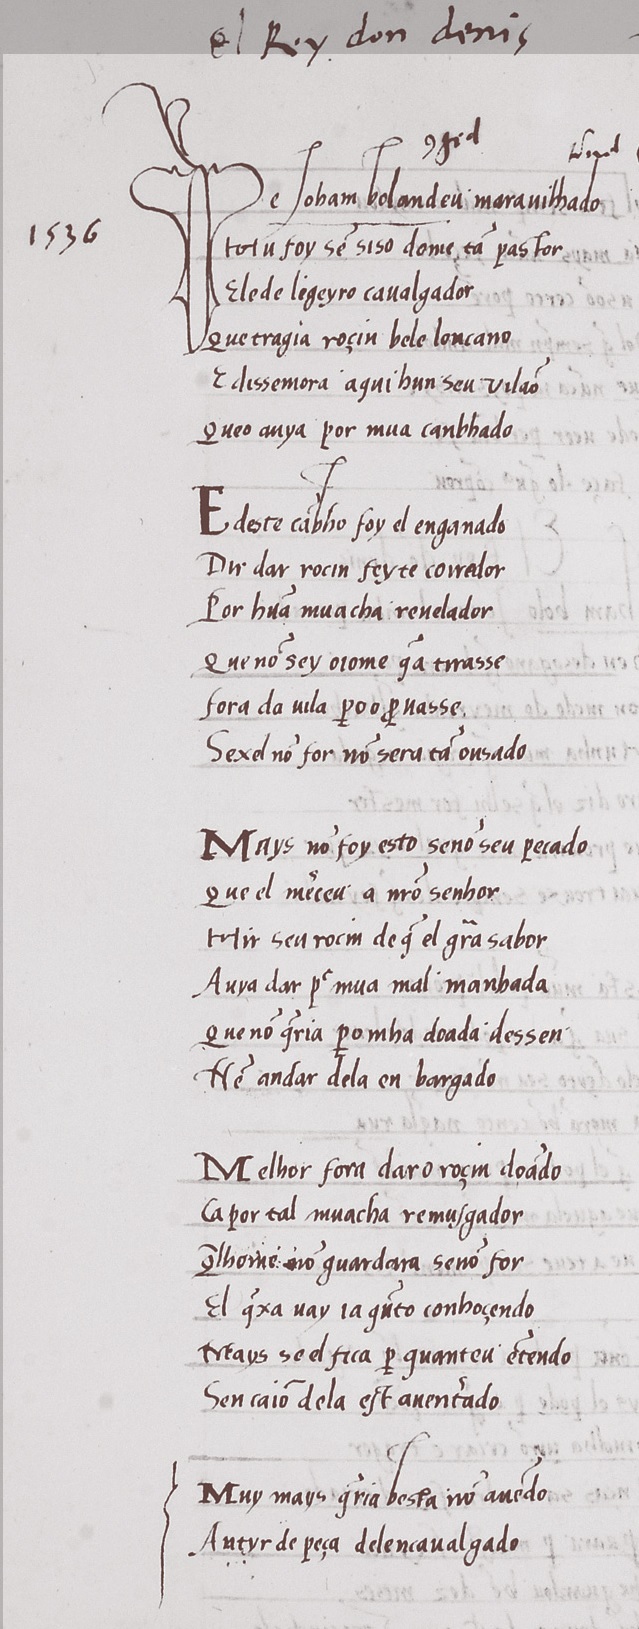 el Rey don denis
1536
De Joham bolandeu maravilhado
tolu foy sẽ siso dome tã pastor
Elede ligeyro caualgador
Que tragia roçin bele loução
E dissemora aqui hun seu vilaõ
Queo auya por mua canbhado
E deste cãbho foy el enganado
Dir dar rocin feyte corredor
Por hũa muacha reuelador
Que nõ sey oiome q̃a tirasse
fora da uila p̱oo ꝓuasse
Sexel nõ for nõ sera tã ousado
Mays nõ foy esto senõ seu pecado
Que el mẽceu a nrõ senhor
Hir seu rocin de q̃ el grã sabor
Auya dar por mua mal manhada
Que nõ q̃ria p̱omha doada dessen
Nẽ andar dela en bargado
Melhor fora daro roçin doado
Ca por tal muacha remusgador
Q̃lhome nõ guardara senõ for
El q̃xa uay ia quãto conhoçendo
Mays se el fica p̱ quanteu ẽtendo
Sen caiõ dela est auentado
Muy mays q̃ria besta nõ auẽdo
Antyr de peça delencaualgado